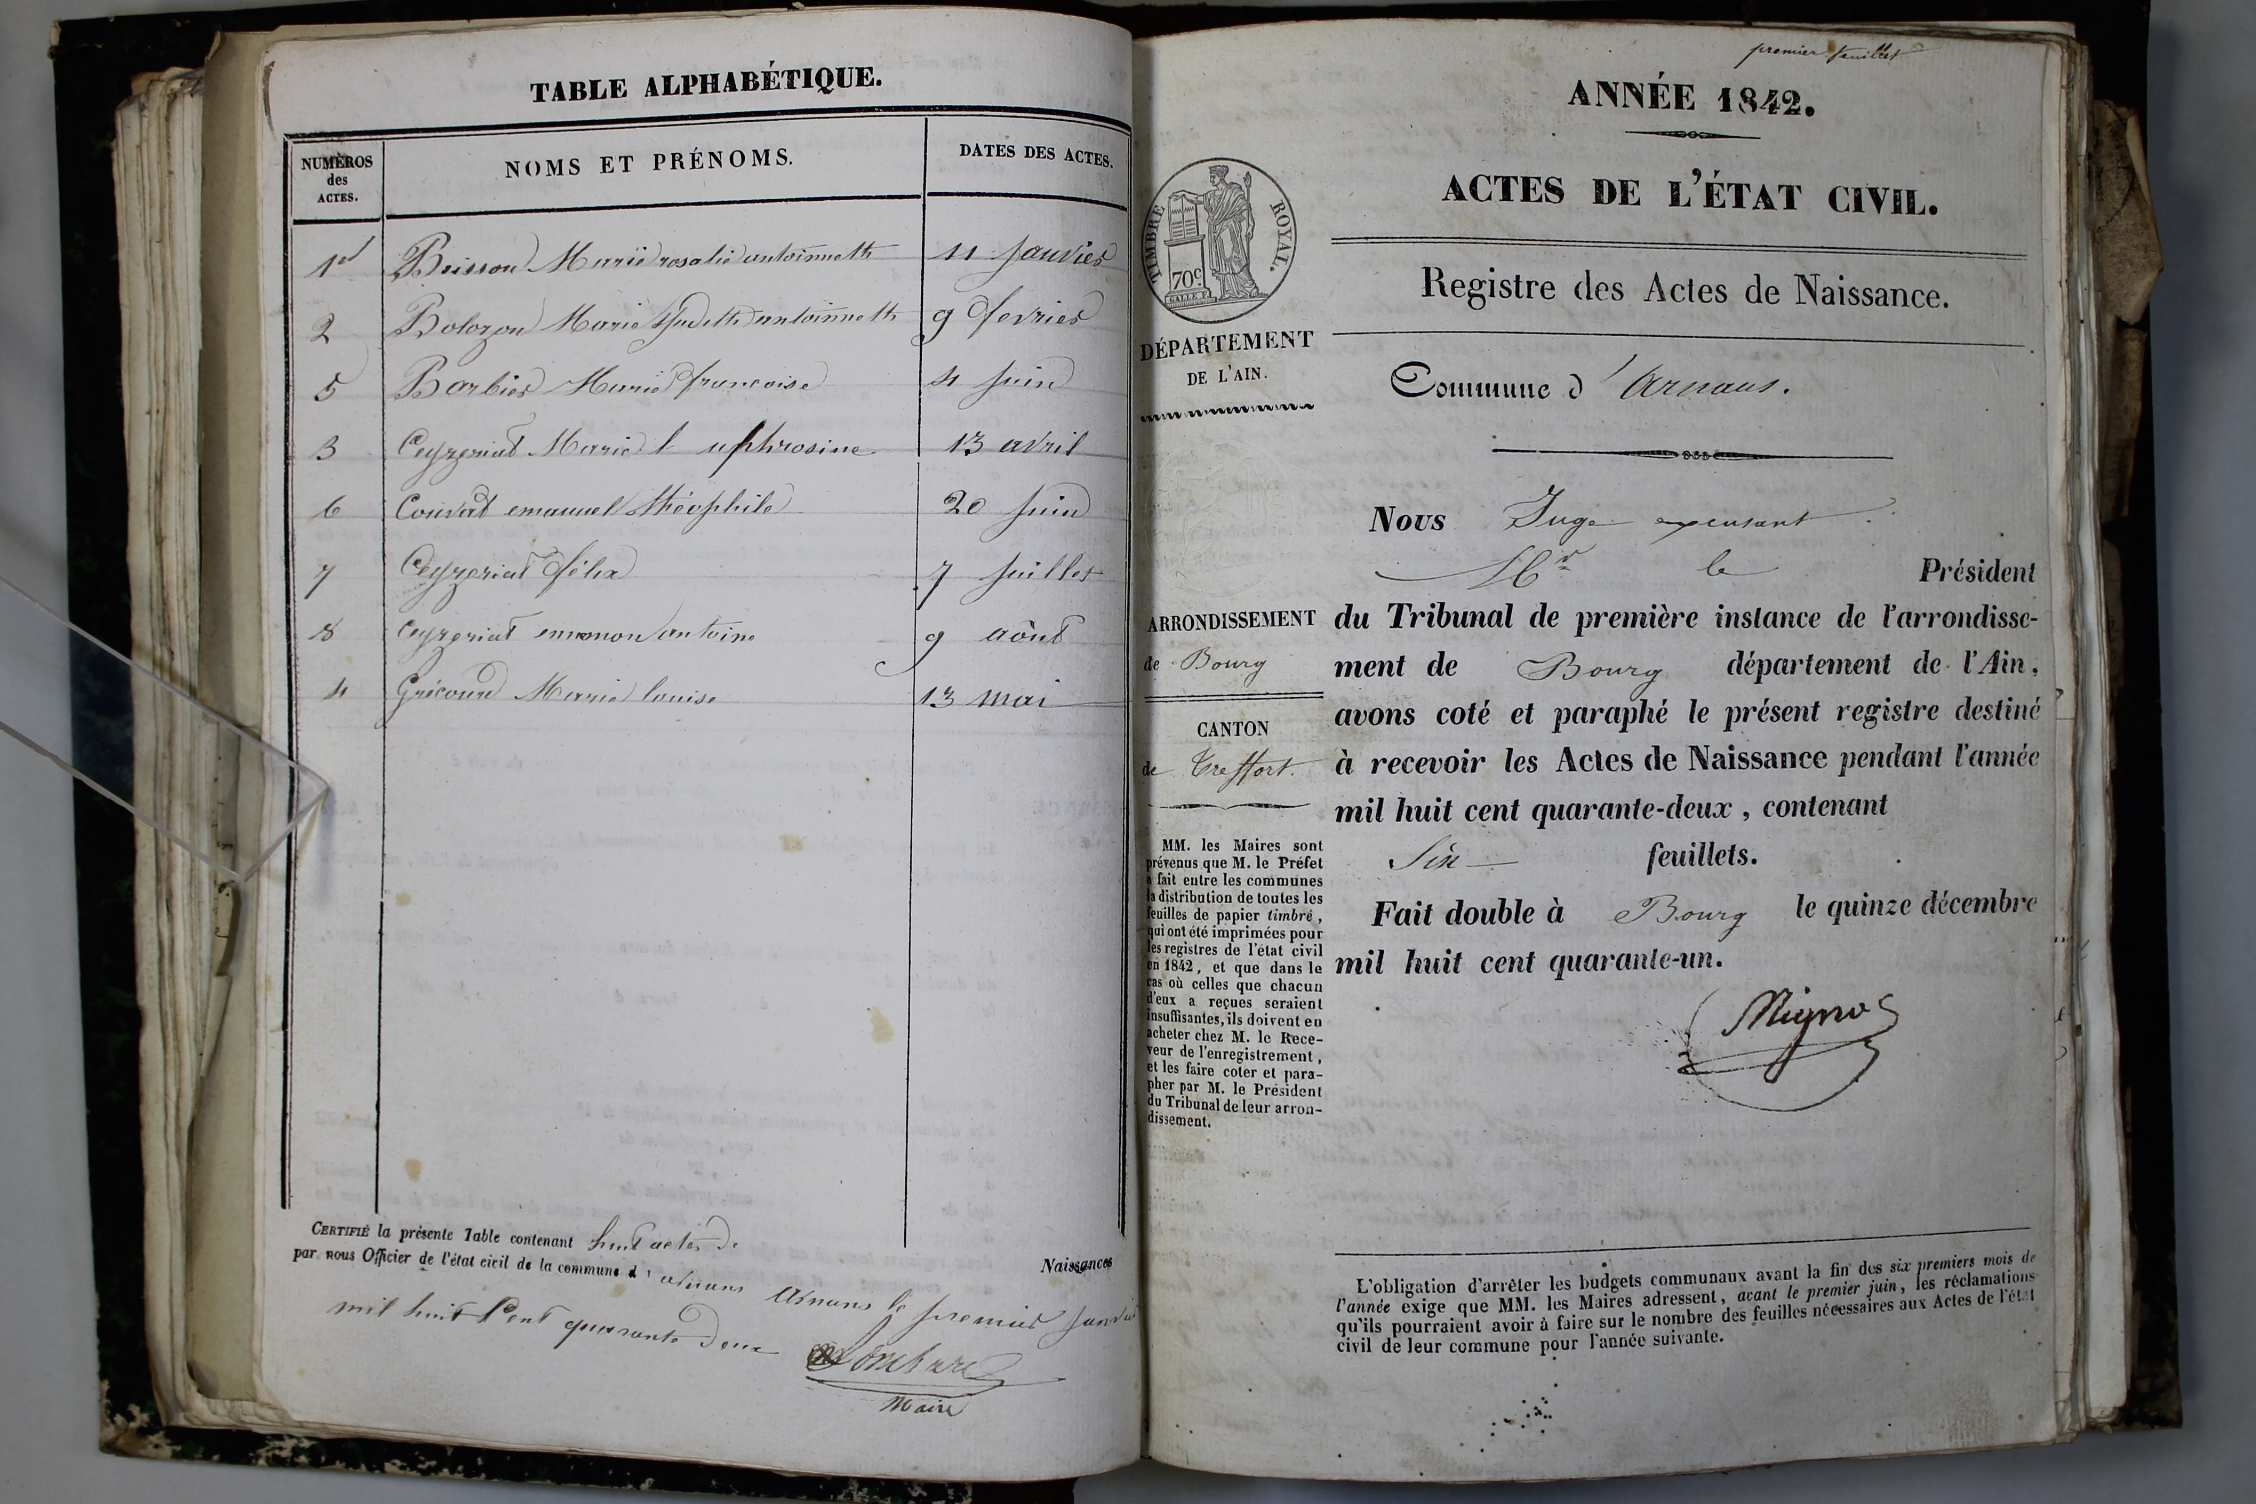 TABLE ALPHABÉTIQUE.
NUMÉROS
des
ACTES.
NOMS ET PRÉNOMS.
DATES DES ACTES.
1er Buisson Marie rosalie antoinnette 11 janvier
2 Bolozon Marie Judith antoinnette 9 fevrier
5 Barbier Marie francoise 4 juin
3 Ceyzeriat Marie Euphrosine 13 avril
6 Couvat emanuel théophile 20 juin
7 Ceyzeriat félix 7 juillet
8 Ceyzeriat antoine 9 aôut
4 Grécourd Marie louise 13 mai
CERTIFIÉ la présente Table contenant huit actes de
Naissances
par nous Officier de l'état civil de la commune d' arnans Arnans le premier janvier
mil huit Cent quarante deux
Maire
premier feuillet
ANNÉE 1842.
ACTES DE L'ÉTAT CIVIL.
Registre des Actes de Naissance.
Commune d' Arnans.
TIMBRE ROYAL.
70c
DÉPARTEMENT
DE L'AIN.
ARRONDISSEMENT
de Bourg
CANTON
de Treffort.
MM. les Maires sont
prévenus que M. le Préfet
a fait entre les communes
la distribution de toutes les
feuilles de papier timbré,
qui ont été imprimées pour
les registres de l'état civil
en 1842, et que dans le
cas où celles que chacun
d'eux a reçues seraient
insuffisantes, ils doivent en
acheter chez M. le Rece-
veur de l'enregistrement,
et les faire coter et para-
pher par M. le Président
du Tribunal de leur arron-
dissement.
Nous Juge excusant
Mr le Président
du Tribunal de première instance de l'arrondisse-
ment de Bourg département de l'Ain,
avons coté et paraphé le présent registre destiné
à recevoir les Actes de Naissance pendant l'année
mil huit cent quarante-deux, contenant
Six feuillets.
Fait double à Bourg le quinze décembre
mil huit cent quarante-un.
L'obligation d'arrêter les budgets communaux avant la fin des six premiers mois de
l'année exige que MM. les Maires adressent, avant le premier juin, les réclamations
qu'ils pourraient avoir à faire sur le nombre des feuilles nécessaires aux Actes de l'état
civil de leur commune pour l'année suivante.